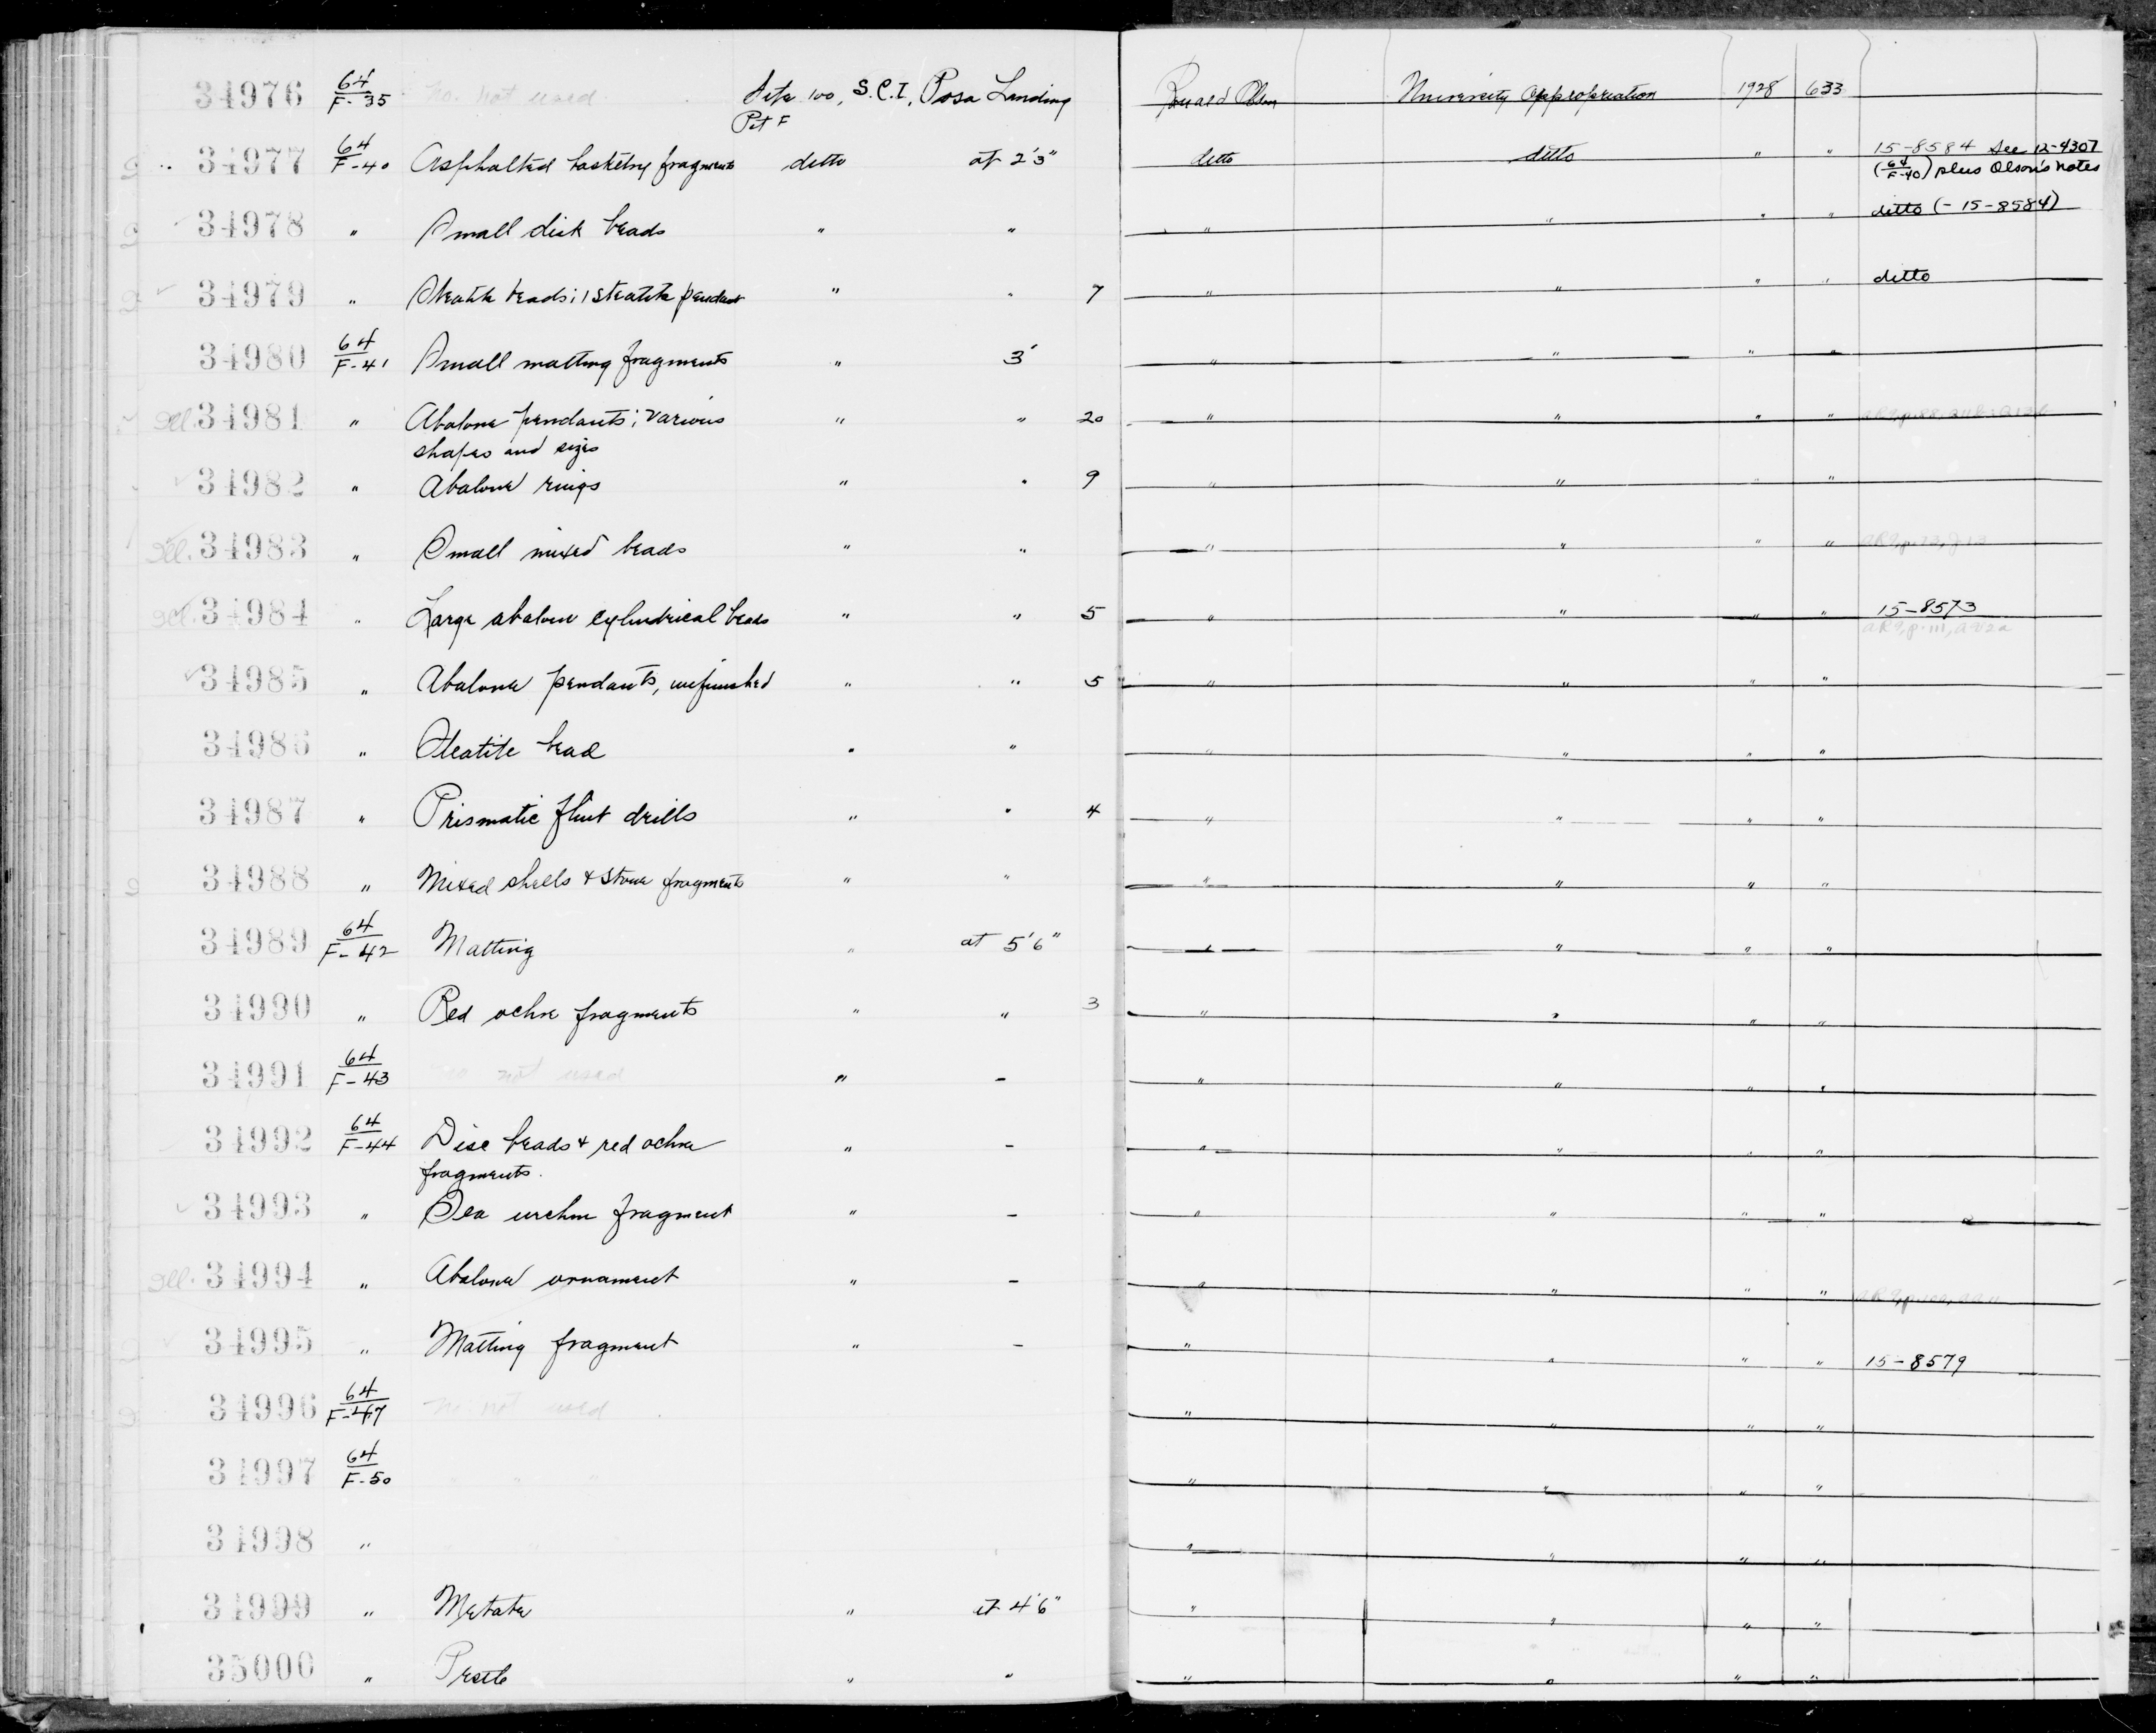 34976 64/F-35 no. not used Site 100, S.C.I, Posa Landing Ronald Olson University Appropriation 1928 633
Pit F
34977 64/F-40 Asphalted basketry fragments ditto at 2'3" ditto ditto " " 15-8584 See 12-4307
(64/F-40) plus Olson's notes
34978 " Small disk beads " " " " " " ditto (-15-8584)
34979 " Steatite beads; 1 steatite pendant " " 7 " " " " ditto
34980 64/F-41 Small matting fragments " 3' " " " "
Ill. 34981 " Abalone pendants; various " " 20 " " " "
shapes and sizes
34982 " Abalone rings " " 9 " " " "
Ill. 34983 " Small mixed beads " " " " " "
Ill. 34984 " Large abalone cylindrical beads " " 5 " " " " 15-8573
34985 " Abalone pendants, unfinished " " 5 " " " "
34986 " Steatite bead " " " " " "
34987 " Prismatic flint drills " " 4 " " " "
34988 " Mixed shells & stone fragments " " " " " "
34989 64/F-42 Matting " at 5'6" " " " "
34990 " Red ochre fragments " " 3 " " " "
34991 64/F-43 no not used " - " " " "
34992 64/F-44 Disc beads & red ochre " - " " " "
fragments.
34993 " Sea urchin fragment " - " " " "
Ill. 34994 " Abalone ornament " - " " " "
34995 " Matting fragment " - " " " " 15-8579
34996 64/F-47 no not used " " " "
34997 64/F-50 " " " " " " "
34998 " " " " "
34999 " Metate " at 4'6" " " " "
35000 " Pestle " " " " " "